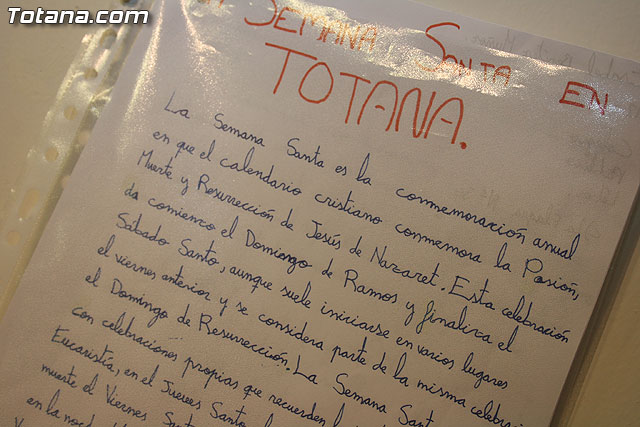 Totana.com
SEMANA SANTA EN
TOTANA.
La Semana Santa es la conmemoración anual
en que el calendario cristiano conmemora la Pasión,
Muerte y Resurrección de Jesús de Nazaret. Esta celebración
da comienzo el Domingo de Ramos y finaliza el
Sábado Santo, aunque suele iniciarse en varios lugares
el viernes anterior y se considera parte de la misma celebració
el Domingo de Resurrección. La Semana Sant
con celebraciones propias que recuerden
Eucaristía, en el Jueves Santo
muerte el Viernes Sant
en la noc
Totana.com